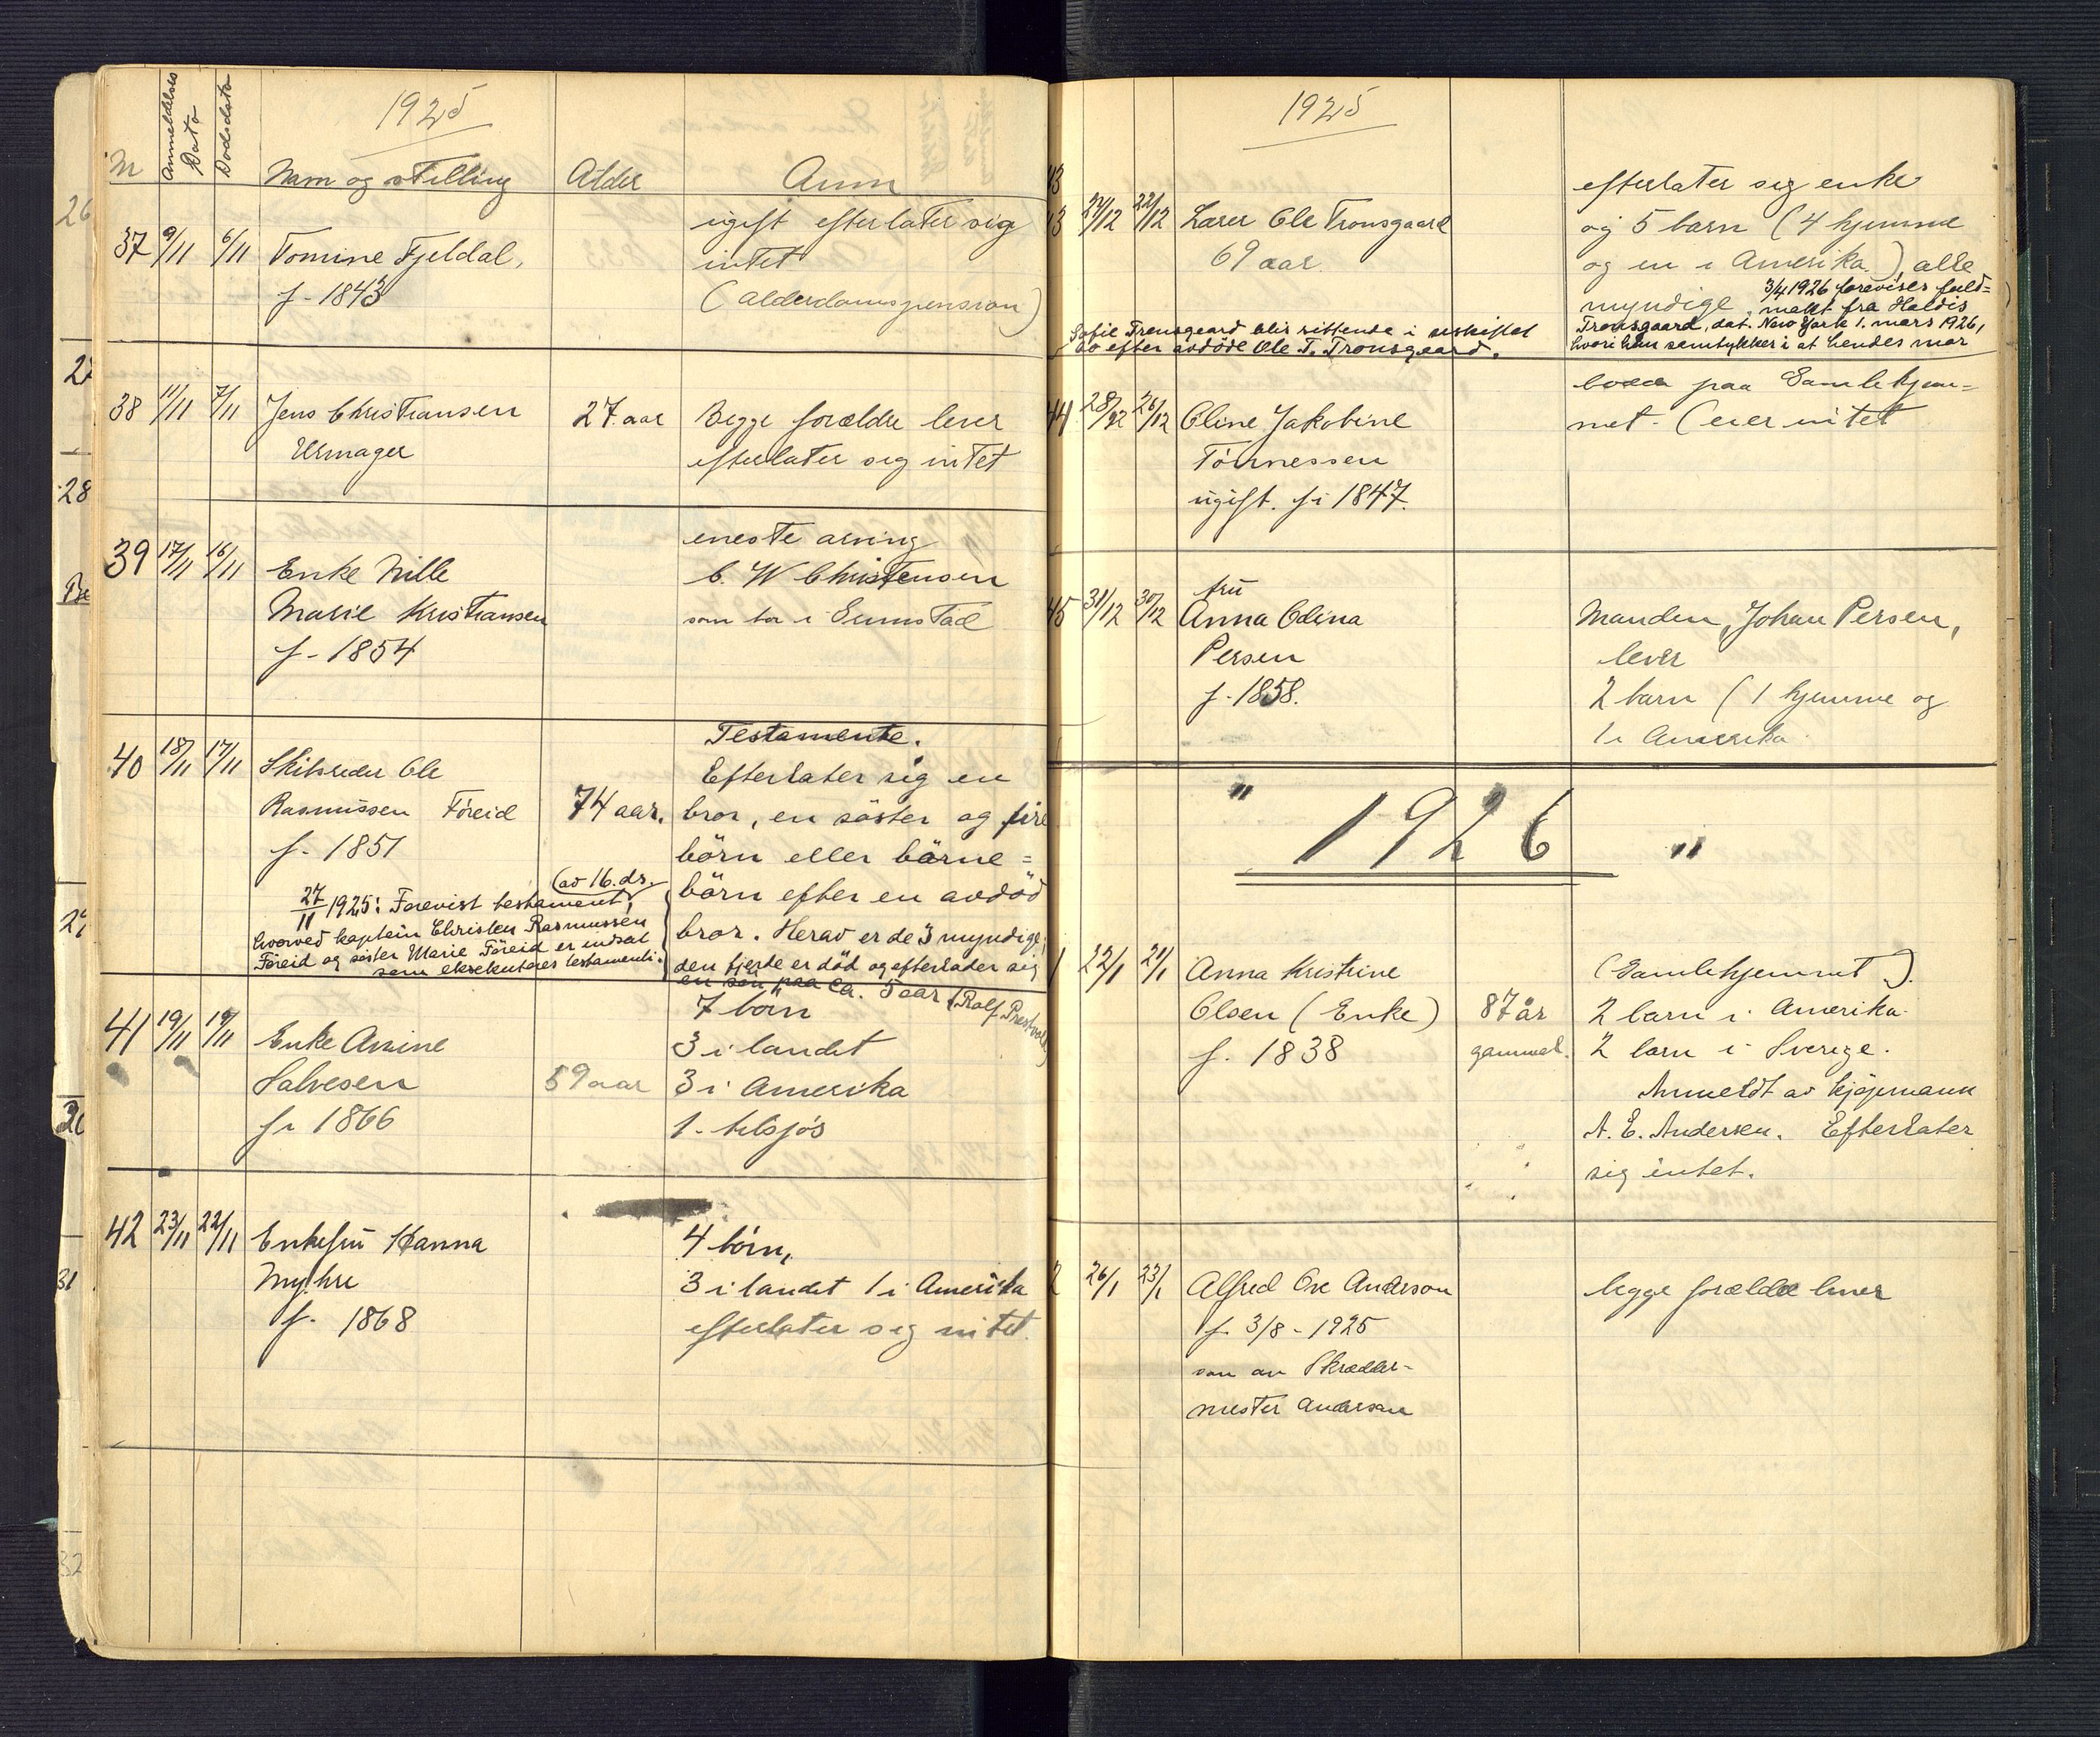 1925
Nr
Anmeldelses Dato
Dødsdato
Navn og stilling
Alder
Anm
37 9/11 6/11 Tomine Fjeldal,
f. 1843
ugift efterlater sig
intet
(alderdomspension)
38 11/11 7/11 Jens Christiansen
Urmager
27 aar
Begge forældre lever
efterlater sig intet
39 17/11 16/11 Enke Nille
Marie Kristiansen
f. 1854
eneste arving
C. W Christensen
som bor i
40 18/11 17/11 Skibsreder Ole
Rasmussen Föreid
f. 1851
74 aar.
27/11 1925: Forevist testament,
(av 16. ds.
hvorved kaptein Christen Rasmussen
Föreid og søster Marie Föreid er indsat
som eksekutores testamenti.
Testamente.
Efterlater sig en
bror, en söster og fire
börn eller börne=
börn efter en avdöd
bror. Herav er de 3 myndige,
den fjerde er död og efterlader sig
en sön paa ca. 5 aar (Rolf
41 19/11 19/11 Enke
Salvesen
f. 1866
59 aar
7 börn
3 i landet
3 i Amerika
1. tilsjös
42 23/11 22/11 Enkefru Hanna
Myhre
f. 1868
4 börn,
3 i landet 1 i Amerika
efterlater sig intet.
26
28
31
32
1925
43
24/12 22/12 Lærer Ole Tronsgaard
69 aar
efterlater sig enke
og 5 barn (4 hjemme
og en i Amerika.) alle
myndige, 3/4 1926 forevises fuld=
makt fra Haldis
Tronsgaard, dat. New York 1. mars 1926,
hvori hun samtykker i at hendes mor
Sofie Tronsgaard blir sittende i uskiftet
bo efter avdöde Ole T. Tronsgaard.
44 28/12 26/12 Oline Jakobine
Tönnessen
ugift. f. 1847.
paa Gamlehjem-
met. (eier intet
45 31/12 30/12 fru
Anna Odina
Persen
f. 1858.
Manden, Johan Persen,
lever
2 barn (1 hjemme og
1 i Amerika
" 1926 "
1 22/1 21/1 Anna Kristine
Olsen (Enke)
f. 1838
87 år
gammel.
(Gamlehjemmet).
2 barn i Amerika.
2 barn i Sverige.
Anmeldt av kjøpmann
A. E. Andersen. Efterlater
sig intet.
2 26/1 23/1 Alfred Ove Anderson
f. 3/8 - 1925
søn av Skrædder-
mester Anderson
begge forældre lever